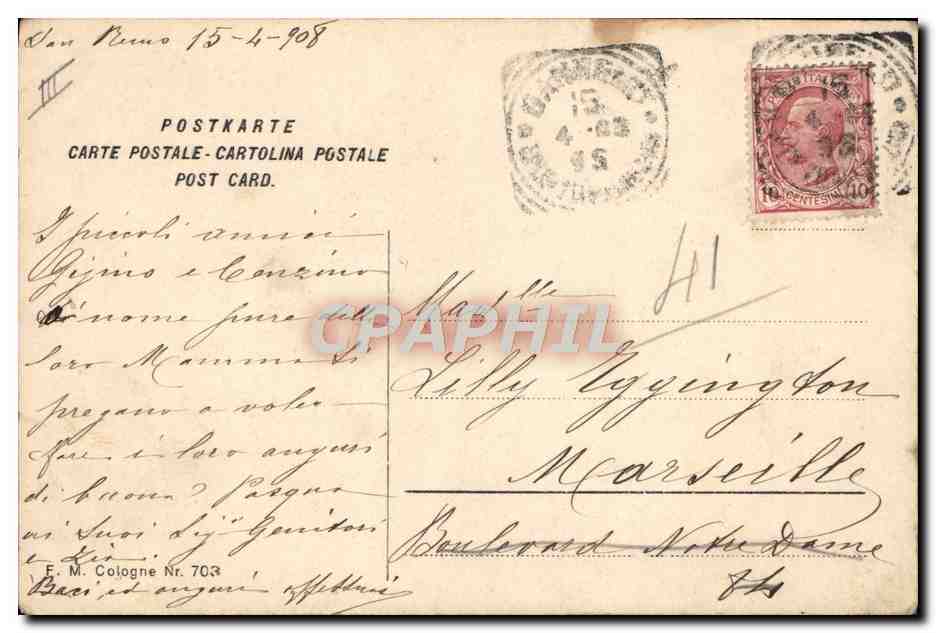 San Remo 15-4-908
III
POSTKARTE
CARTE POSTALE - CARTOLINA POSTALE
POST CARD.
I piccoli amici
Gigino e Cenzino
nome pure del
loro Mamma Li
pregano a voler
fare i loro auguri
di buona Pasqua
ai Suoi Sigri Genitori
e Zia.
Baci ed auguri affettuosi
F. M. Cologne Nr. 703
SANREMO
15
4 - 08
POSTE ITALIANE
10 CENTESIMI 10
41
Mad.lle
Lilly Eggington
Marseille
Boulevard Notre Dame
CPAPHIL